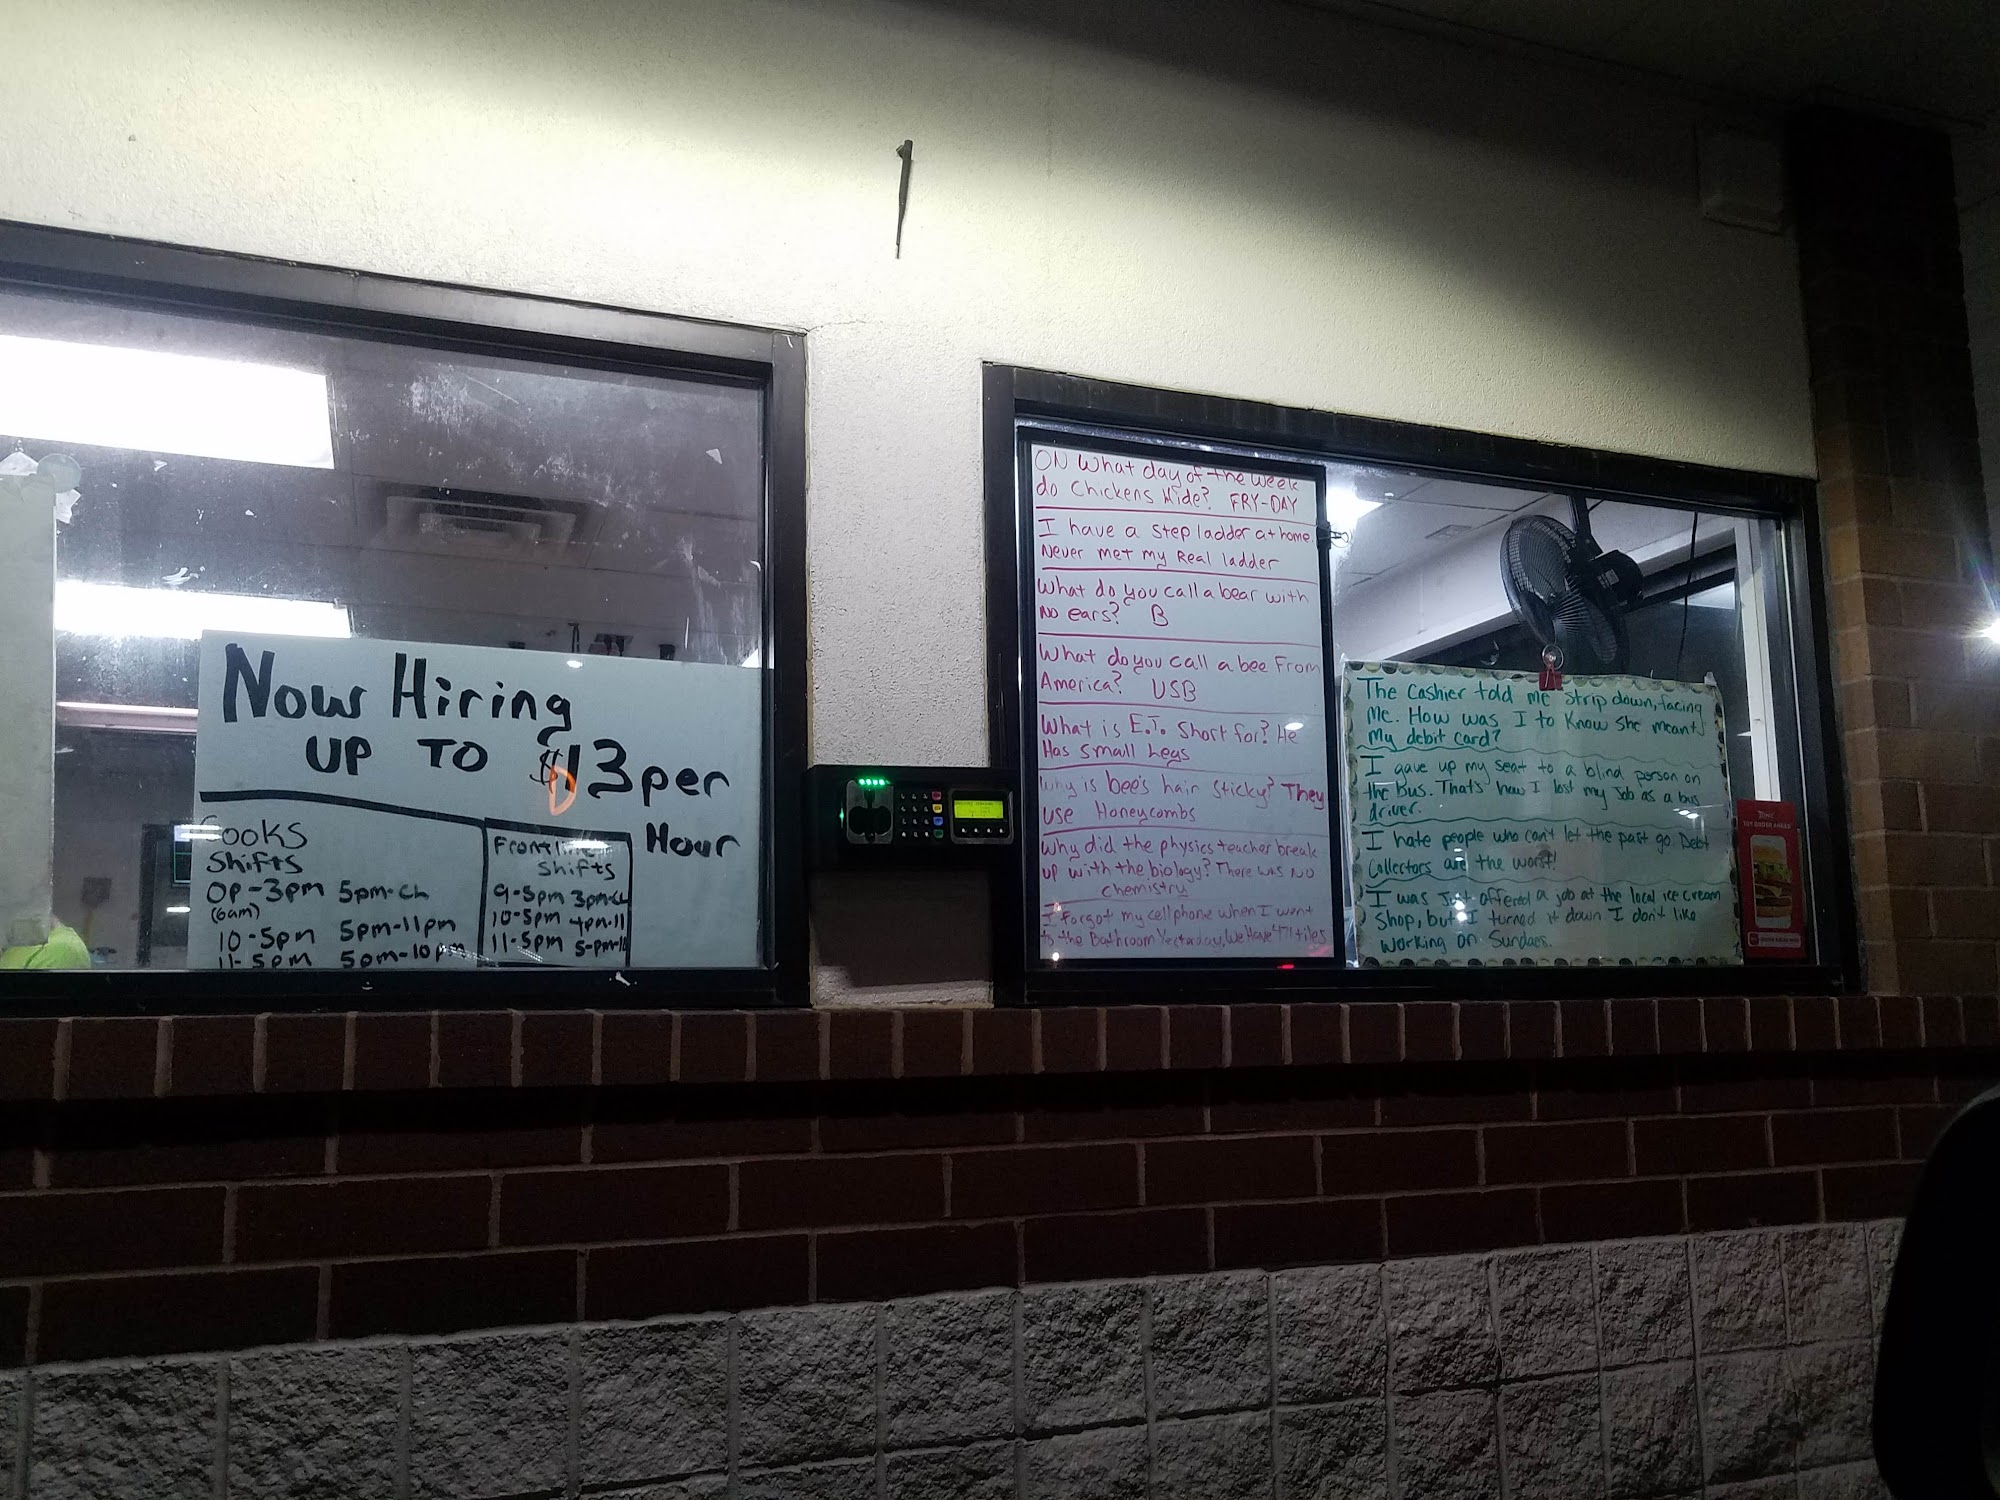 Now Hiring
UP TO $13 per
Hour
Cooks
Shifts
OP-3pm 5pm-CL
(6am)
10-5pm 5pm-11pm
11-5pm 5pm-10pm
Frontline
Shifts
9-5pm 3pm-CL
10-5pm 4pm-11
11-5pm 5-pm-
ON What day of the week
do Chickens Hide? FRY-DAY
I have a step ladder at home.
Never met my Real ladder
What do you call a bear with
No ears? B
What do you call a bee From
America? USB
What is E.T. Short for? He
Has small Legs
Why is bee's hair sticky? They
use Honeycombs
Why did the physics teacher break
up with the biology? There was NO
chemistry
I Forgot my cellphone when I went
to the Bathroom Yesterday, We Have 471 tiles
The Cashier told me strip down, facing
Me. How was I to know she meant
My debit card?
I gave up my seat to a blind person on
the bus. That's how I lost my job as a bus
driver.
I hate people who can't let the past go. Debt
Collectors are the worst!
I was Just offered a job at the local ice cream
Shop, but I turned it down I don't like
working on Sundaes.